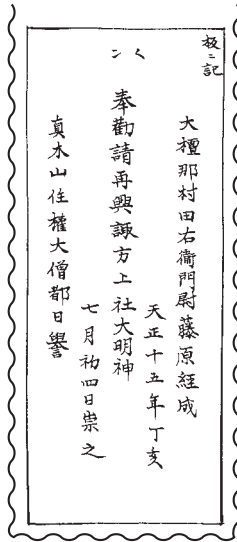 板ニ記
大檀那村田右衞門尉藤原経成
天正十五年丁亥
奉勸請再興諏方上社大明神
七月初四日崇之
真木山住權大僧都日譽